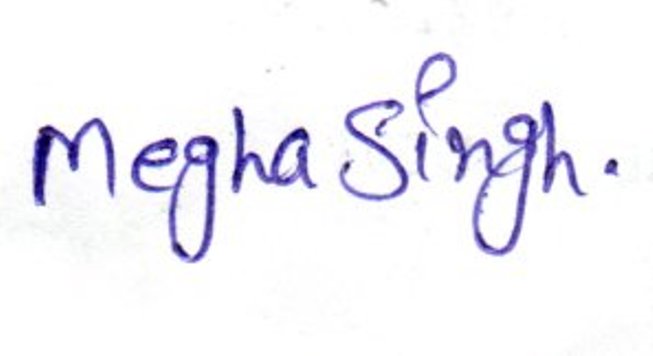 Megha Singh.